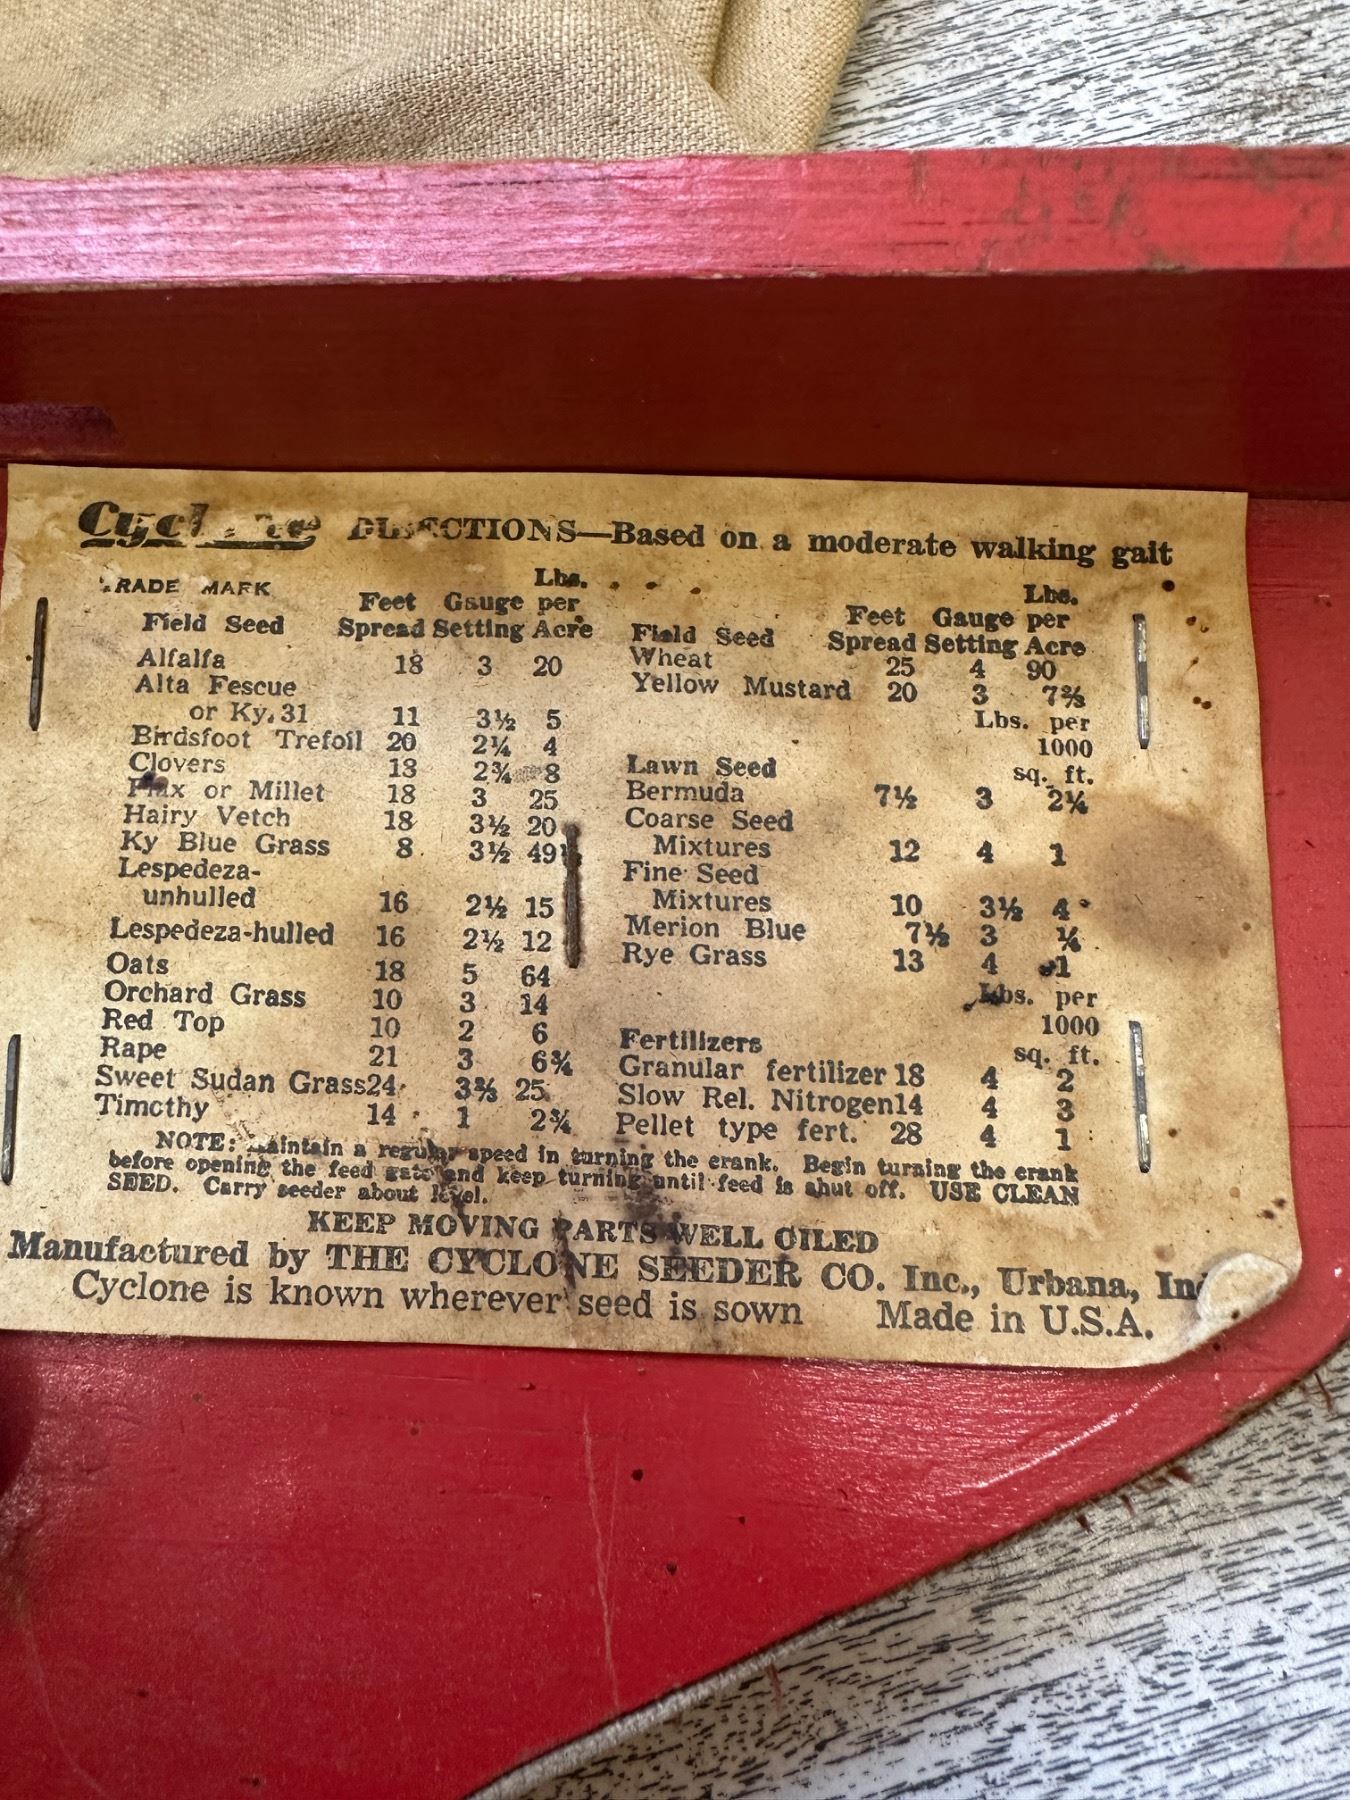 Cyclone DIRECTIONS—Based on a moderate walking gait
TRADE MARK
Field Seed Feet Spread Gauge Setting Lbs. per Acre
Alfalfa 18 3 20
Alta Fescue
or Ky. 31 11 3½ 5
Birdsfoot Trefoil 20 2¼ 4
Clovers 18 2¾ 8
Flax or Millet 18 3 25
Hairy Vetch 18 3½ 20
Ky Blue Grass 8 3½ 49
Lespedeza-
unhulled 16 2½ 15
Lespedeza-hulled 16 2½ 12
Oats 18 5 64
Orchard Grass 10 3 14
Red Top 10 2 6
Rape 21 3 6¾
Sweet Sudan Grass 24 25
Timothy 14 1 2¾
Field Seed Feet Spread Gauge Setting Lbs. per Acre
Wheat 25 4 90
Yellow Mustard 20 3
Lbs. per
1000
Lawn Seed sq. ft.
Bermuda 7½ 3 2¼
Coarse Seed
Mixtures 12 4 1
Fine Seed
Mixtures 10 3½ 4
Merion Blue 7½ 3
Rye Grass 13 4 1
Lbs. per
1000
Fertilizers sq. ft.
Granular fertilizer 18 4 2
Slow Rel. Nitrogen 14 4 3
Pellet type fert. 28 4 1
NOTE: Maintain a regular speed in turning the crank. Begin turning the crank
before opening the feed gate and keep turning until feed is shut off. USE CLEAN
SEED. Carry seeder about level.
KEEP MOVING PARTS WELL OILED
Manufactured by THE CYCLONE SEEDER CO. Inc., Urbana, Ind
Cyclone is known wherever seed is sown Made in U.S.A.